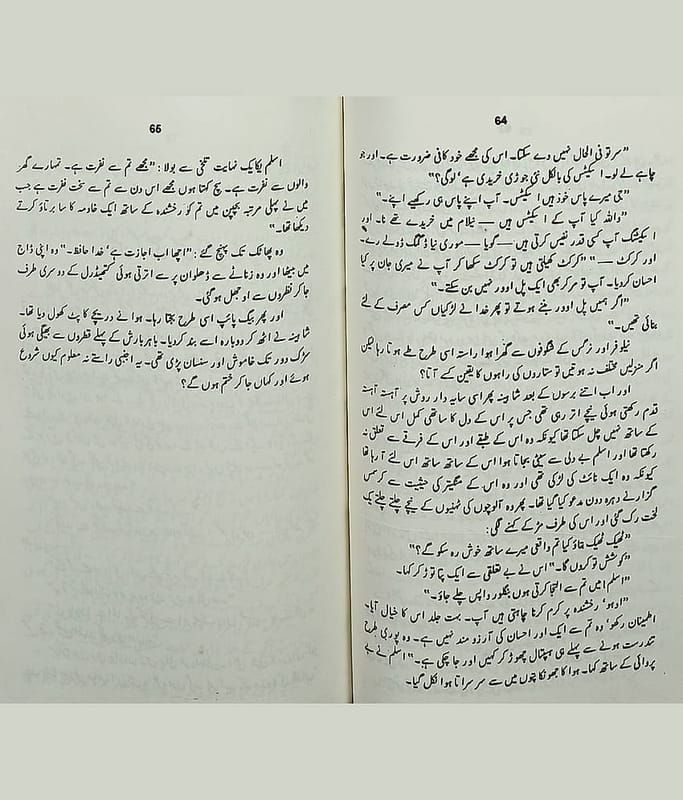 64
"سر تو فی الحال نہیں دے سکتا۔ اس کی مجھے خود کافی ضرورت ہے۔ اور جو
چاہے لے لو۔ اسکیٹس کی بالکل نئی جوڑی خریدی ہے' لوگی؟"
"جی میرے پاس خود ہیں اسکیٹس۔ آپ اپنے پاس ہی رکھیے اپنے۔"
"واللہ کیا آپ کے اسکیٹس ہیں — نیلام میں خریدے تھے نا۔ اور
اسکیٹنگ آپ کسی قدر نفیس کرتی ہیں — گویا — موری نیا ڈنگ ڈولے رے۔
اور کرکٹ —" "کرکٹ کھیلتی ہیں تو کرکٹ سکھا کر آپ نے میری جان پر کیا
احسان کر دیا۔ آپ تو مر کر بھی ایک پل اوور نہیں بن سکتے۔"
"اگر ہمیں پل اوور بننے ہوتے تو پھر خدا نے لڑکیاں کس مصرف کے لئے
بنائی تھیں۔"
نیلوفر اور نرگس کے شگوفوں سے گھرا ہوا راستہ اسی طرح طے ہوتا رہا لیکن
اگر منزلیں مختلف نہ ہوتیں تو ستاروں کی راہوں کا یقین کسے آتا؟
اور اب اتنے برسوں کے بعد شاہینہ پھر اسی سایہ دار روش پر آہستہ آہستہ
قدم رکھتی ہوئی نیچے اتر رہی تھی جس پر اس کے دل کا ساتھی کمل اس لئے اس
کے ساتھ نہیں چل سکتا تھا کیونکہ وہ اس کے طبقے اور اس کے فرقے سے تعلق نہ
رکھتا تھا اور اسلم بے دلی سے سیٹی بجاتا ہوا اس کے ساتھ ساتھ اس لئے آ رہا تھا
کیونکہ وہ ایک نائٹ کی لڑکی تھی اور وہ اس کے منگیتر کی حیثیت سے کرسمس
گزارنے دہرہ دون مدعو کیا گیا تھا۔ پھر وہ آلوچوں کی ٹہنیوں کے نیچے چلتے چلتے یک
لخت رک گئی اور اس کی طرف مڑ کے کہنے لگی:
"ٹھیک ٹھیک بتاؤ کیا تم واقعی میرے ساتھ خوش رہ سکو گے؟"
"کوشش تو کروں گا۔" اس نے بے تعلقی سے ایک پتا توڑ کر کہا۔
"اسلم! میں تم سے التجا کرتی ہوں بنگلور واپس چلے جاؤ۔"
"اوہو' رخشندہ پر کرم کرنا چاہتی ہیں آپ۔ بہت جلد اس کا خیال آیا۔
اطمینان رکھو' وہ تم سے ایک اور احسان کی آرزو مند نہیں ہے۔ وہ پوری طرح
تندرست ہونے سے پہلے ہی ہسپتال چھوڑ کر کہیں اور جا چکی ہے۔" اسلم نے بے
پروائی کے ساتھ کہا۔ ہوا کا جھونکا پتوں میں سے سرسراتا ہوا نکل گیا۔
65
اسلم یکایک نہایت تلخی سے بولا: "مجھے تم سے نفرت ہے۔ تمہارے گھر
والوں سے نفرت ہے۔ سچ کہتا ہوں مجھے اس دن سے تم سے سخت نفرت ہے جب
میں نے پہلی مرتبہ بچپن میں تم کو رخشندہ کے ساتھ ایک خادمہ کا سا برتاؤ کرتے
دیکھا تھا۔"
وہ پھاٹک تک پہنچ گئے: "اچھا اب اجازت ہے' خدا حافظ۔" وہ اپنی ڈاج
میں بیٹھا اور وہ زناٹے سے ڈھلوان پر سے اترتی ہوئی کتھیڈرل کے دوسری طرف
جا کر نظروں سے اوجھل ہو گئی۔
اور پھر بیگ پائپ اسی طرح بجتا رہا۔ ہوا نے دریچے کا پٹ کھول دیا تھا۔
شاہینہ نے اٹھ کر دوبارہ اسے بند کر دیا۔ باہر بارش کے پہلے قطروں سے بھیگی ہوئی
سڑک دور تک خاموش اور سنسان پڑی تھی۔ یہ اجنبی راستے نہ معلوم کیوں شروع
ہوئے اور کہاں جا کر ختم ہوں گے؟